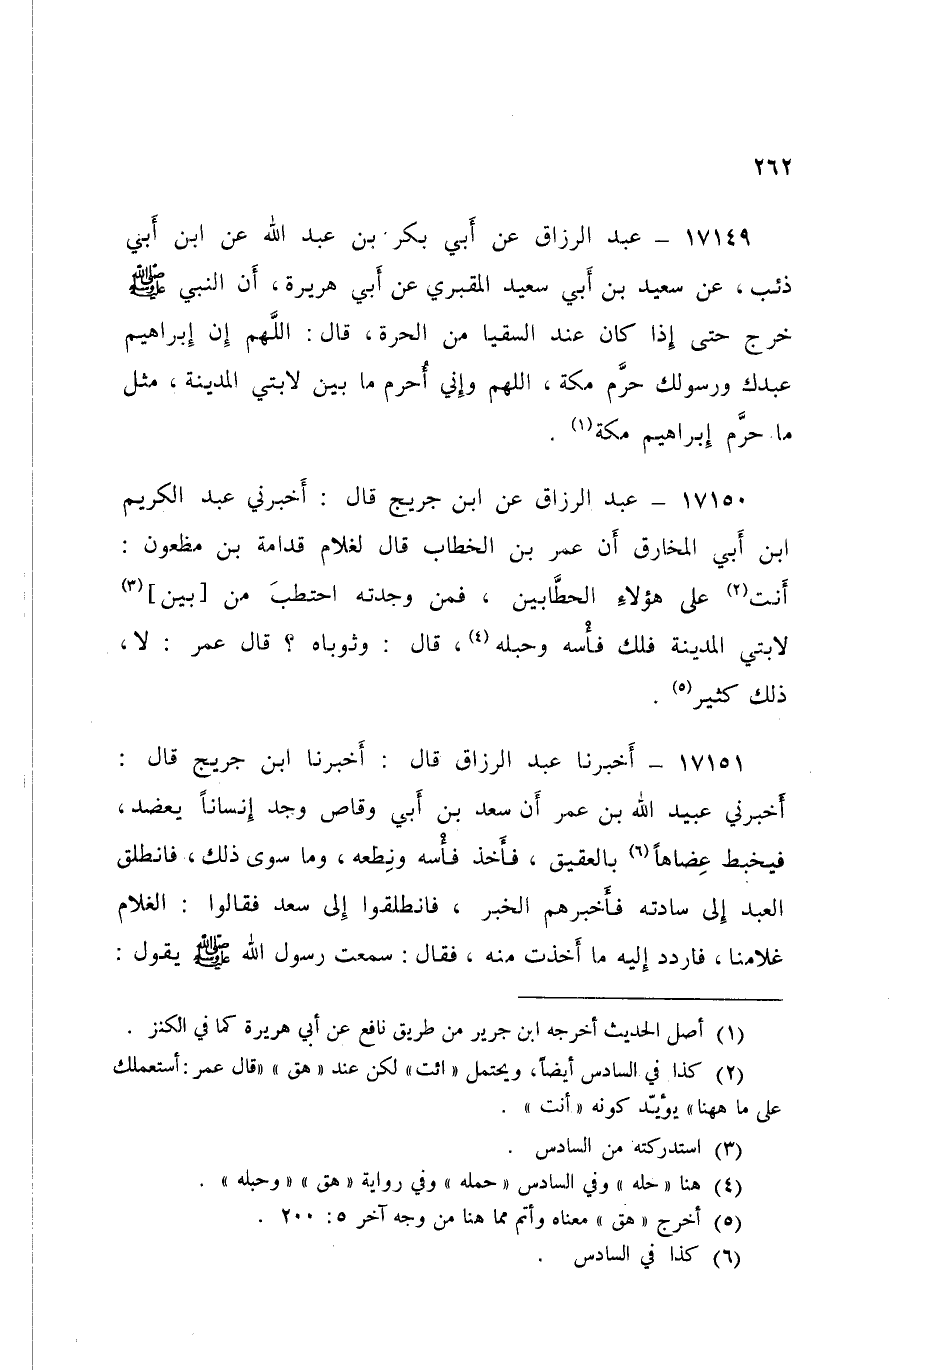 ٢٦٢
١٧١٤٩ – عبد الرزاق عن أَبي بكر بن عبد الله عن ابن أَبي
ذئب ، عن سعيد بن أَبي سعيد المقبري عن أَبي هريرة ، أَن النبي ﷺ
خرج حتى إِذا كان عند السقيا من الحرة ، قال : اللَّهم إِن إِبراهيم
عبدك ورسولك حرَّم مكة ، اللهم وإِني أُحرم ما بين لابتي المدينة ، مثل
ما حرَّم إِبراهيم مكة(١) .
١٧١٥٠ – عبد الرزاق عن ابن جريج قال : أَخبرني عبد الكريم
ابن أَبي المخارق أَن عمر بن الخطاب قال لغلام قدامة بن مظعون :
أَنت(٢) على هؤلاءِ الحطَّابين ، فمن وجدته احتطبَ من [بين](٣)
لابتي المدينة فلك فأْسه وحبله(٤) ، قال : وثوباه ؟ قال عمر : لا ،
ذلك كثير(٥) .
١٧١٥١ – أَخبرنا عبد الرزاق قال : أَخبرنا ابن جريج قال :
أَخبرني عبيد الله بن عمر أَن سعد بن أَبي وقاص وجد إِنساناً يعضد ،
فيخبط عِضاهاً(٦) بالعقيق ، فأَخذ فأْسه ونِطعه ، وما سوى ذلك ، فانطلق
العبد إِلى سادته فأَخبرهم الخبر ، فانطلقوا إِلى سعد فقالوا : الغلام
غلامنا ، فاردد إِليه ما أَخذت منه ، فقال : سمعت رسول الله ﷺ يقول :
(١) أصل الحديث أخرجه ابن جرير من طريق نافع عن أبي هريرة كما في الكنز .
(٢) كذا في السادس أيضاً، ويحتمل « ائت» لكن عند « هق » «قال عمر : أستعملك
على ما ههنا» يؤيّد كونه « أنت » .
(٣) استدركته من السادس .
(٤) هنا « حله » وفي السادس « حمله » وفي رواية « هق » « وحبله » .
(٥) أخرج « هق » معناه وأتم مما هنا من وجه آخر ٥: ٢٠٠ .
(٦) كذا في السادس .